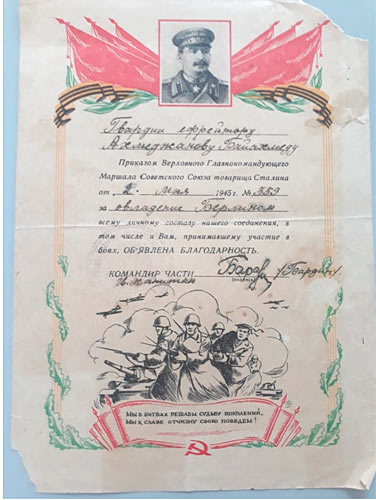 Гвардии ефрейтору
Ахмеджанову Байахмеду
Приказом Верховного Главнокомандующего
Маршала Советского Союза товарища Сталина
от 2 мая 1945 г. № 359
за овладение Берлином
всему личному составу нашего соединения, в
том числе и Вам, принимавшему участие в
боях, ОБ'ЯВЛЕНА БЛАГОДАРНОСТЬ.
КОМАНДИР ЧАСТИ
капитан
МЫ В БИТВАХ РЕШАЕМ СУДЬБУ ПОКОЛЕНИЙ,
МЫ К СЛАВЕ ОТЧИЗНУ СВОЮ ПОВЕДЕМ!